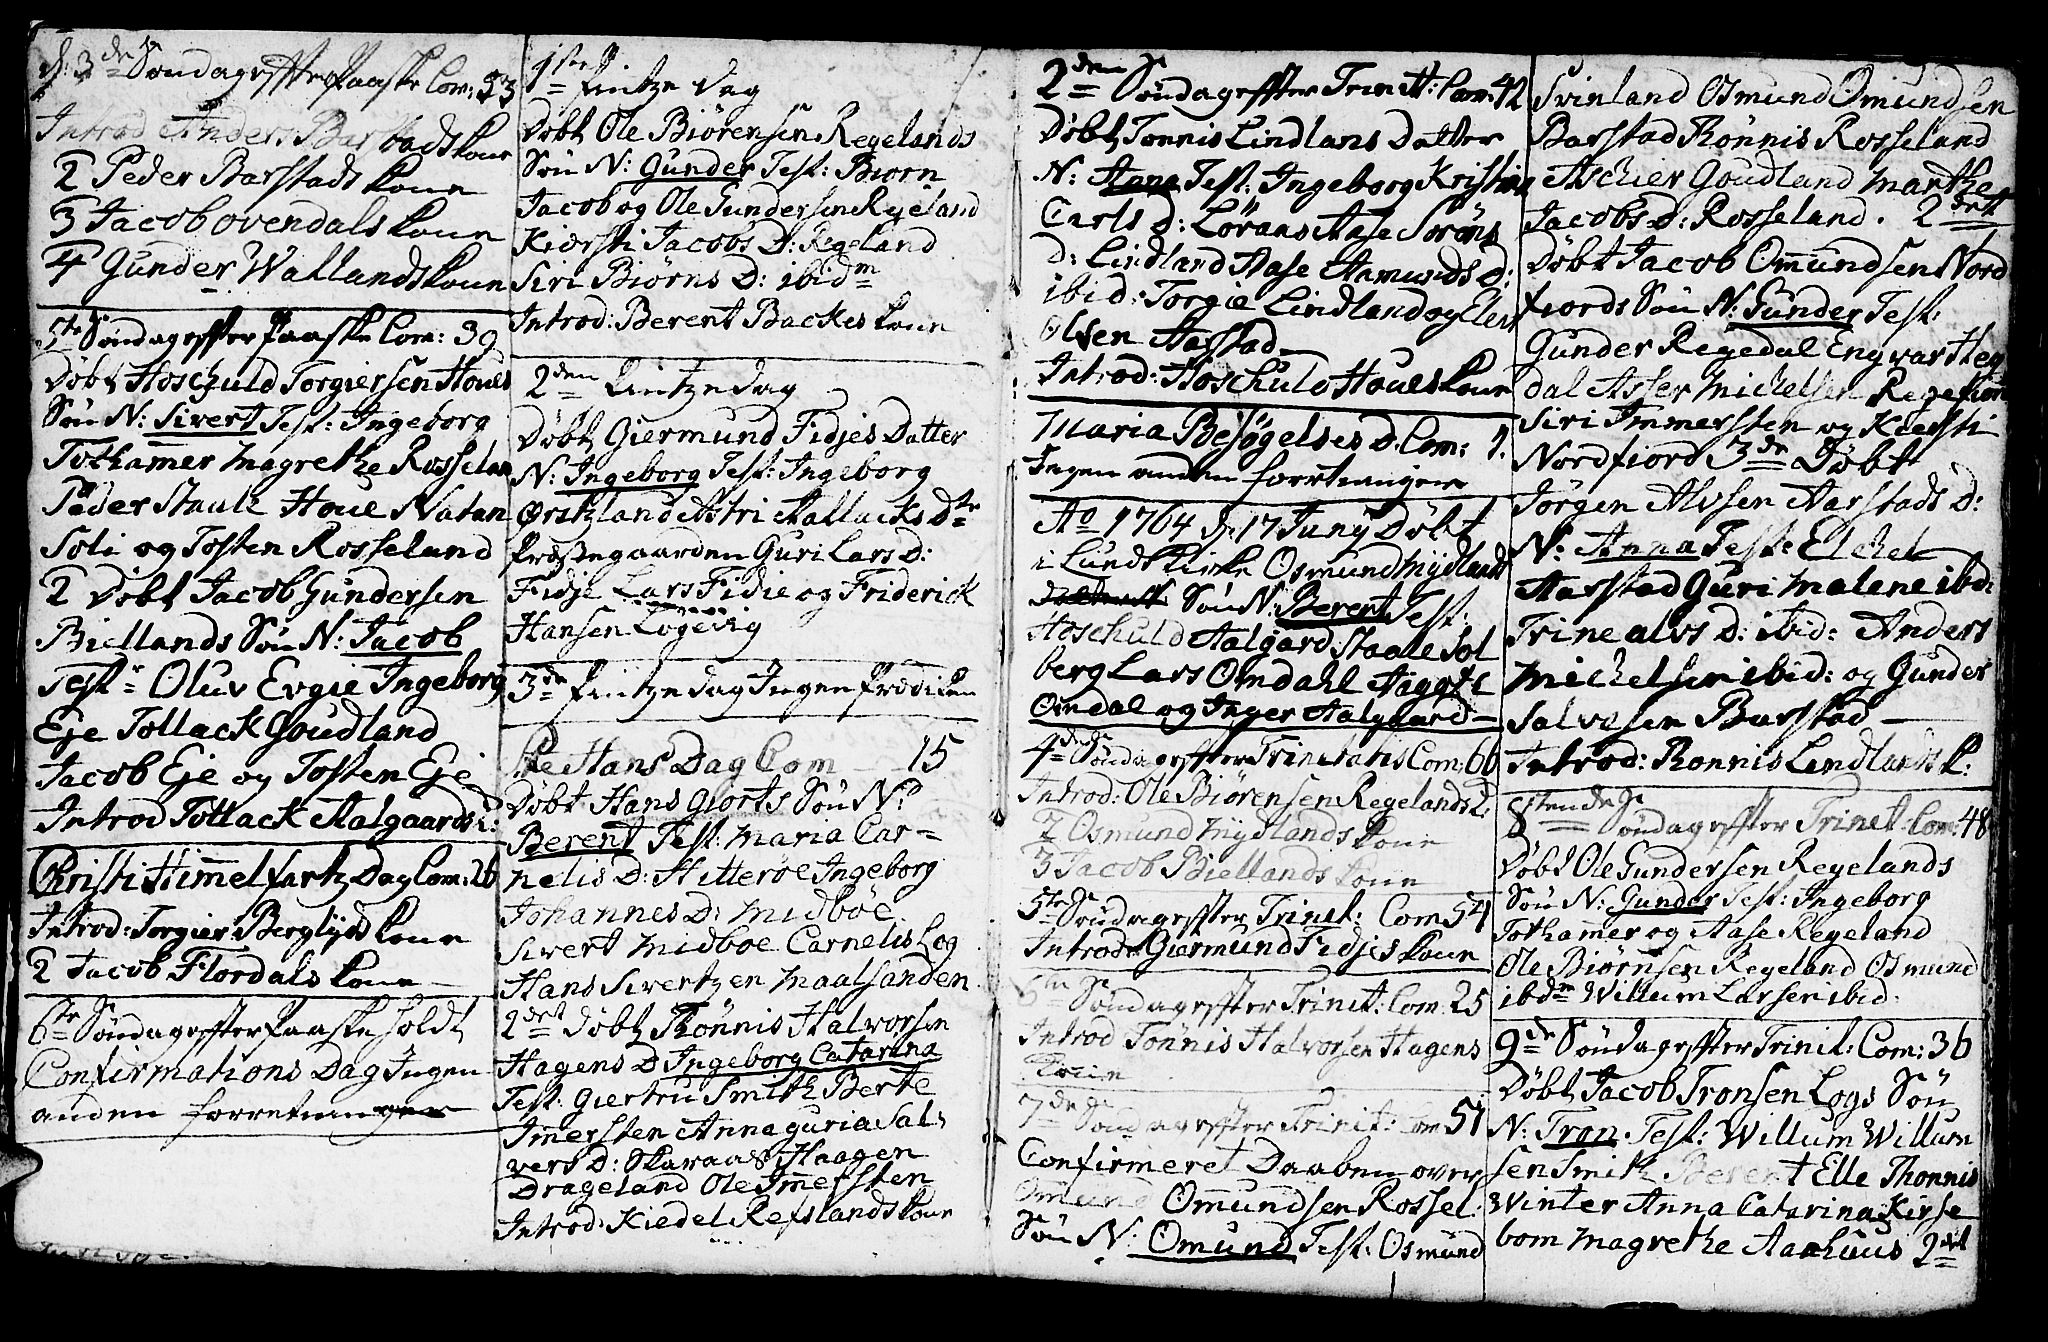 d: 3de Søndag effter Paaske Com: 53
Introd Anders Barstads kone
2 Peder Barstads kone
3 Jacob ovendals kone
4 Gunder Wallands kone
5te Søndag effter Paaske Com: 39
Døbt Hoschuld Torgiersen Houes
Søn N: Sivert Test: Ingeborg
Tothamer Magrethe Rosselan
Peder Staule Houe Natan
Soli og Tosten Rosseland
2 Døbt Jacob Gundersen
Biellands Søn N: Jacob
Test: Oluv Evgie Ingeborg
Eje Tollack Goudland
Jacob Eje og Tosten Eje
Introd Tollack Aalgaards k:
Christi Himmelfartz Dag Com: 26
Introd: Torgier Berglyds kone
2 Jacob Flordals kone
6te Søndag effter Paaske holdt
Confirmations Dag Ingen
anden forretninger
1ste Pintze dag
Døbt Ole Biørensen Regelands
Søn N: Gunder Test: Biørn
Jacob og Ole Gundersen Regeland
Kiersti Jacobs D: Regeland
Siri Biørns D: ibidm
Introd: Berent Backes kone
2den Pintze dag
Døbt Giermund Fidjes Datter
N: Ingeborg Test: Ingeborg
Ørstzland Astri Aallacks Dtr
Præstegaarden Guri Lars D:
Fidje Lars Fidie og Friderick
Hansen Logevig
3de Pintze dag Ingen Prædiken
Ste Hans Dag Com 15
Døbt Hans Giorts Søn No
Berent Test: Maria Car=
nelis D: Hitterøe Ingeborg
Johannes D: Midbøe
Sivert Midboe Carnelis Log
Hans Sivertzen Maalsanden
2det Døbt Tønnis Halvorsen
Hagens D Ingeborg Catarina
Test: Giertru Smith Berte
Imersten Anna guria Sal=
vers D: Skaraas Haagen
Drageland Ole Imersten
Introd: Kiedel Refslands kone
2den S Søndag effter Trinit: Com: 42
Døbt Tonnis Lindlans Datter
N: Anna Test: Ingeborg Kristin
Carls D: Lørans Aase Sørens
D: Lindland Aase Aamunds D:
ibid: Torgie Lindland og Elert
Olsen Aastad
Introd: Hoschuld Houes kone
Maria Besøgelses D. Com: 1.
Ingen anden forretninger
Ao 1764 d: 17 Juny Døbt
i Lunds Kirke Osmund Mydland
Søn N: Berent Test:
Hoschuld Aalgard Staale Sol
berg Lars Omdahl Aagote
Omdal og Inger Aalgaard
4de Søndag effter Trinitatis Com: 66
Introd: Ole Biørensen Regelands k:
2 Osmund Mydlands kone
3 Jacob Biellands kone
5te Søndag effter Trinit: Com 54
Introd Giermund Fidjes kone
6te Søndag effter Trinit: Com: 25
Introd Tonnis Halvorsen Hagens
Kone
7de Søndag effter Trinit: Com 51
Confirmeret Daaben over
Omund Omundsen Rossel:
Søn N: Omund Test: Osmund
Svinland Osmund Omundsen
Barstad Rønnis Rosseland
Aschier Goudland Marthe
Jacobs D: Rosseland. 2det
Døbt Jacob Omundsen Nord
fiords Søn N: Gunder Test:
Gunder Regedal Engvar Heg
dal Asser Michelsen Regefiord
Siri Immersten og Kiersti
Nordfiord 3de Døbt
Jørgen Alvsen Aarstads D:
N: Anna Test: Elchel
Aarstad Guri Malene ibd:
Trine alvs D: ibid: Anders
Michelsen ibid: og Gunder
Salvesen Barstad
Introd: Ronnis Lendlands k:
8tende Søndag effter Trinit Com: 48
Døbt Ole Gundersen Regelands
Søn N: Gunder Test: Ingeborg
Tothamer og Aase Regeland
Ole Biørnsen Regeland Osmund
ibdm Willum Larsen ibid:
9de Søndag effter Trinit: Com: 36
Døbt Jacob Tronsen Logs Søn
N: Tron. Test: Willum Willum
sen Smith Berent Elle Thonnis
Winter Anna Catarina Kirse
bom Magrethe Aarhuus 2det